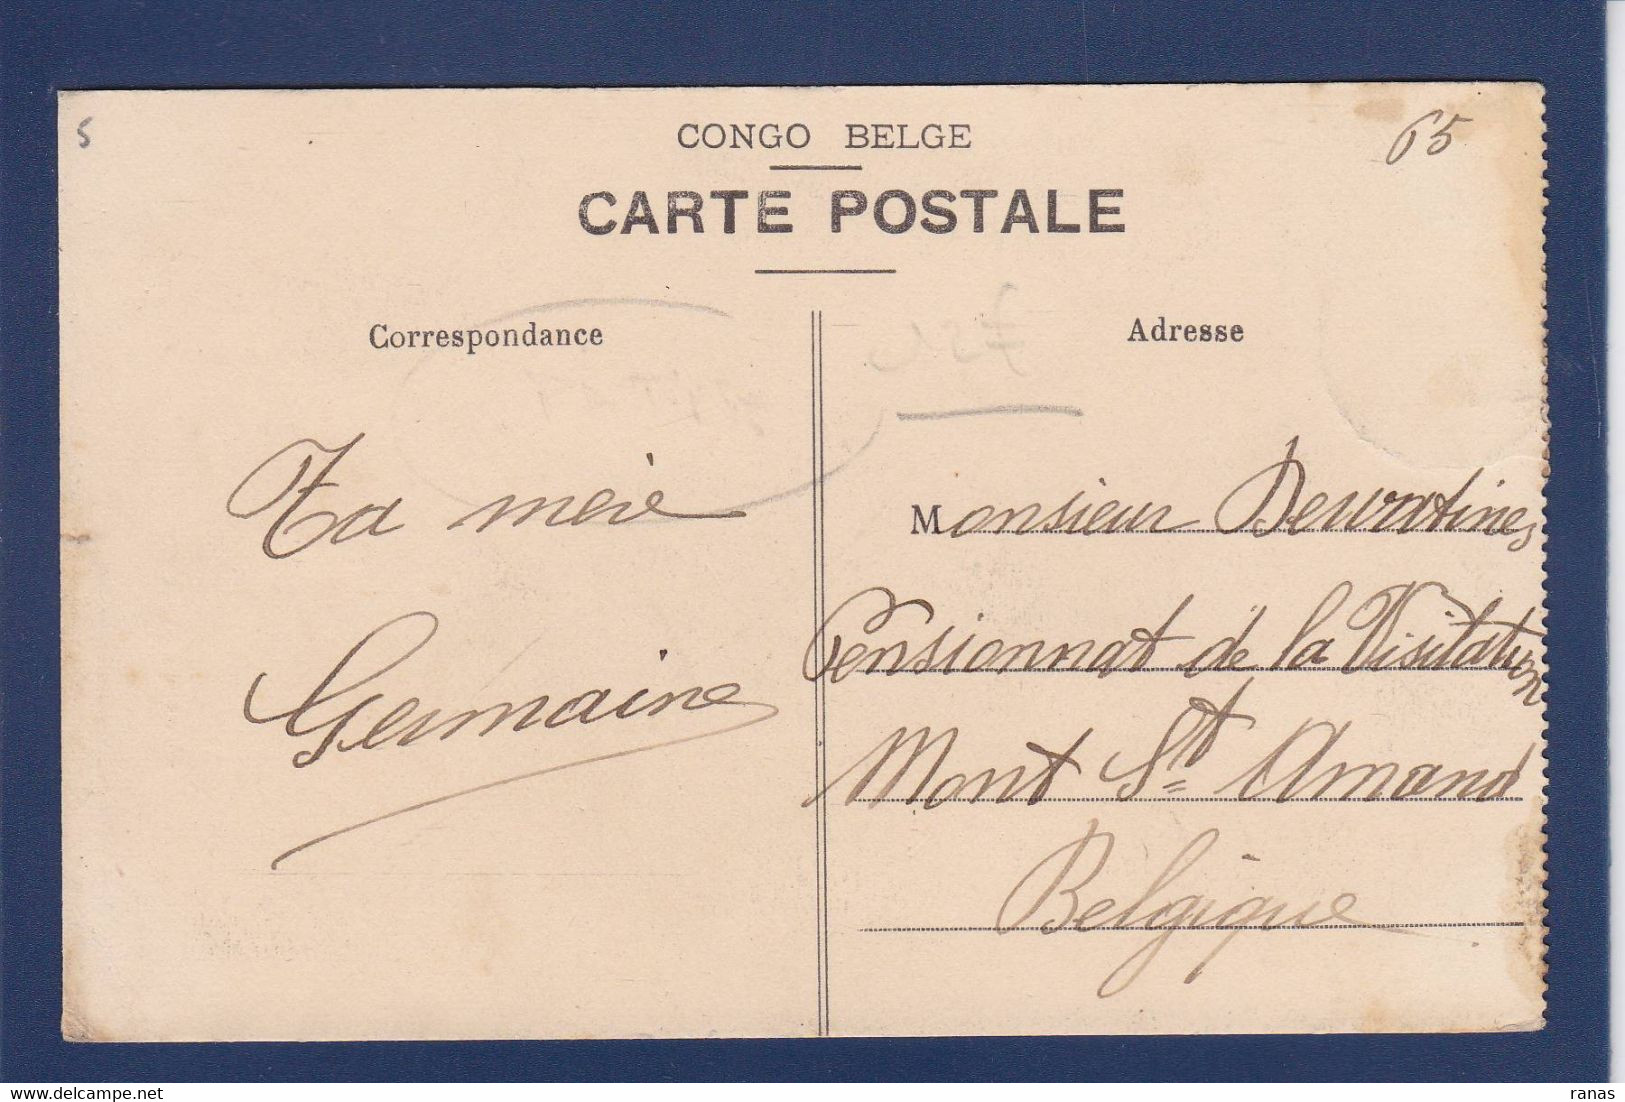 5
CONGO BELGE
65
CARTE POSTALE
Correspondance
Adresse
Ta mère
Germaine
Monsieur
Pensionnat de la Visitation
Mont St Amand
Belgique
ranas